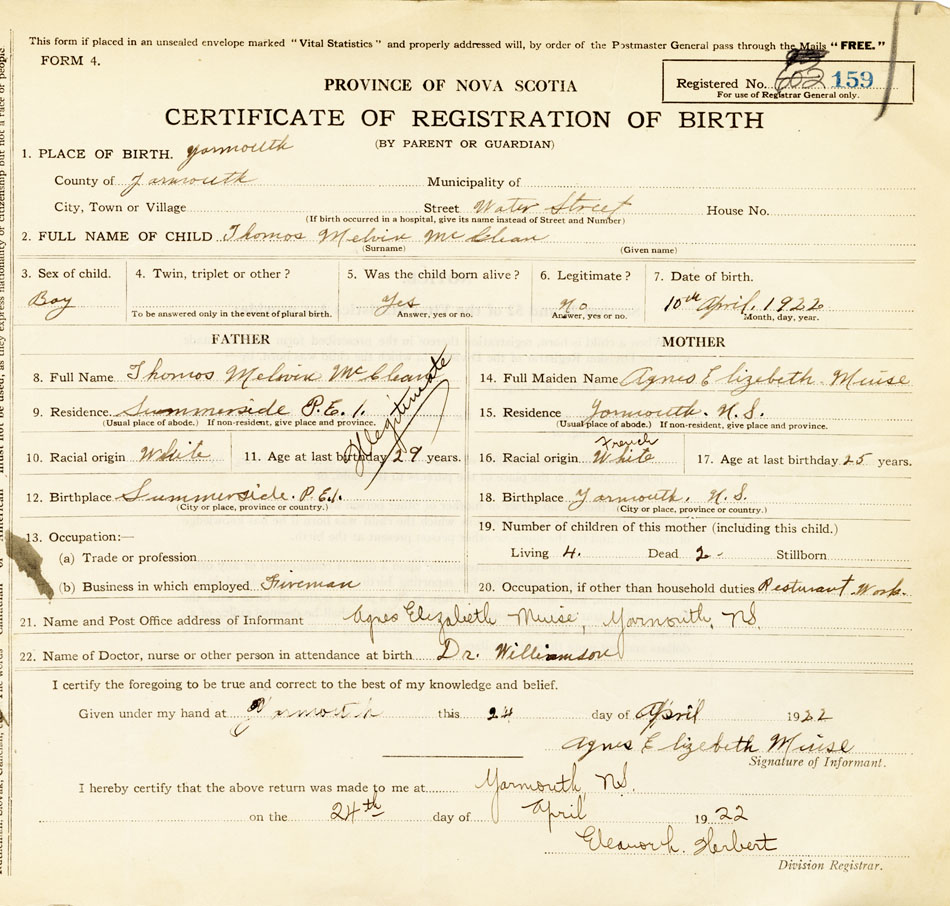 This form if placed in an unsealed envelope marked "Vital Statistics" and properly addressed will, by order of the Postmaster General pass through the Mails "FREE."
FORM 4.
PROVINCE OF NOVA SCOTIA
Registered No. 602 159
For use of Registrar General only.
CERTIFICATE OF REGISTRATION OF BIRTH
(BY PARENT OR GUARDIAN)
1. PLACE OF BIRTH. Yarmouth
County of Yarmouth Municipality of
City, Town or Village Street Water Street House No.
(If birth occurred in a hospital, give its name instead of Street and Number)
2. FULL NAME OF CHILD Thomas Melvin McClean
(Surname) (Given name)
3. Sex of child. 4. Twin, triplet or other? 5. Was the child born alive? 6. Legitimate? 7. Date of birth.
Boy Yes No 10th April, 1922
To be answered only in the event of plural birth. Answer, yes or no. Answer, yes or no. Month, day, year.
FATHER MOTHER
8. Full Name Thomas Melvin McClean 14. Full Maiden Name Agnes Elizebeth Muise
Illegitimate
9. Residence. Summerside P.E.I. 15. Residence Yarmouth. N.S.
(Usual place of abode.) If non-resident, give place and province. (Usual place of abode.) If non-resident, give place and province.
French
10. Racial origin White 11. Age at last birthday 29 years. 16. Racial origin White 17. Age at last birthday 25 years.
12. Birthplace Summerside. P.E.I. 18. Birthplace Yarmouth, N.S.
(City or place, province or country.) (City or place, province or country.)
13. Occupation:— 19. Number of children of this mother (including this child.)
(a) Trade or profession Living 4. Dead 2- Stillborn
(b) Business in which employed Fireman 20. Occupation, if other than household duties Resturant Work.
21. Name and Post Office address of Informant Agnes Elizabeth Muise, Yarmouth, N.S.
22. Name of Doctor, nurse or other person in attendance at birth Dr. Williamson
I certify the foregoing to be true and correct to the best of my knowledge and belief.
Given under my hand at Yarmouth this 24 day of April 1922
Agnes Elizebeth Muise
Signature of Informant.
I hereby certify that the above return was made to me at Yarmouth, N.S.
on the 24th day of April 1922
Eleanor L. Herbert
Division Registrar.